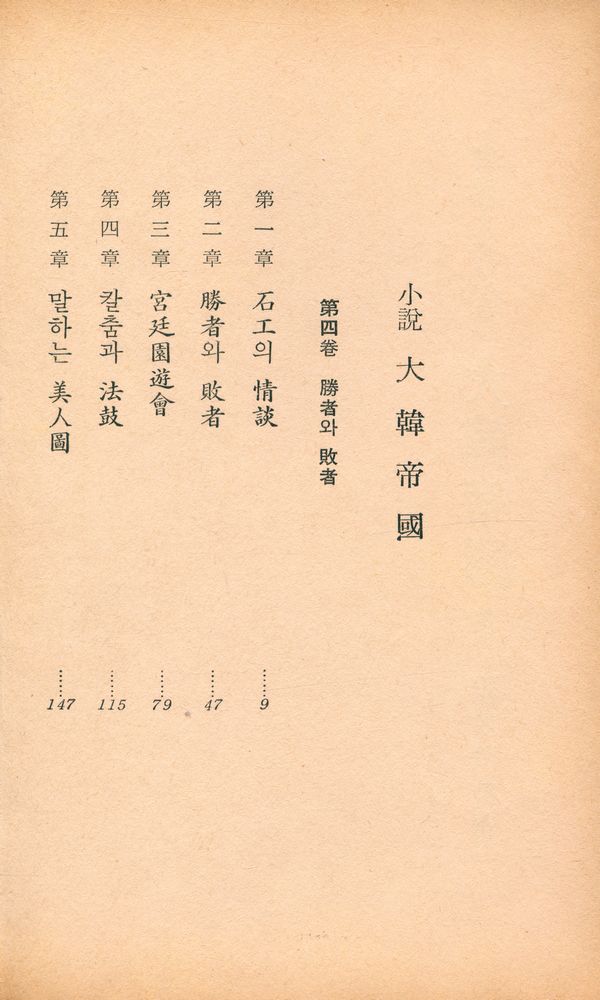 小說 大韓帝國
第四卷 勝者와 敗者
第一章 石工의 情談 ……… 9
第二章 勝者와 敗者 ……… 47
第三章 宮廷園遊會 ……… 79
第四章 칼춤과 法鼓 ……… 115
第五章 말하는 美人圖 ……… 147